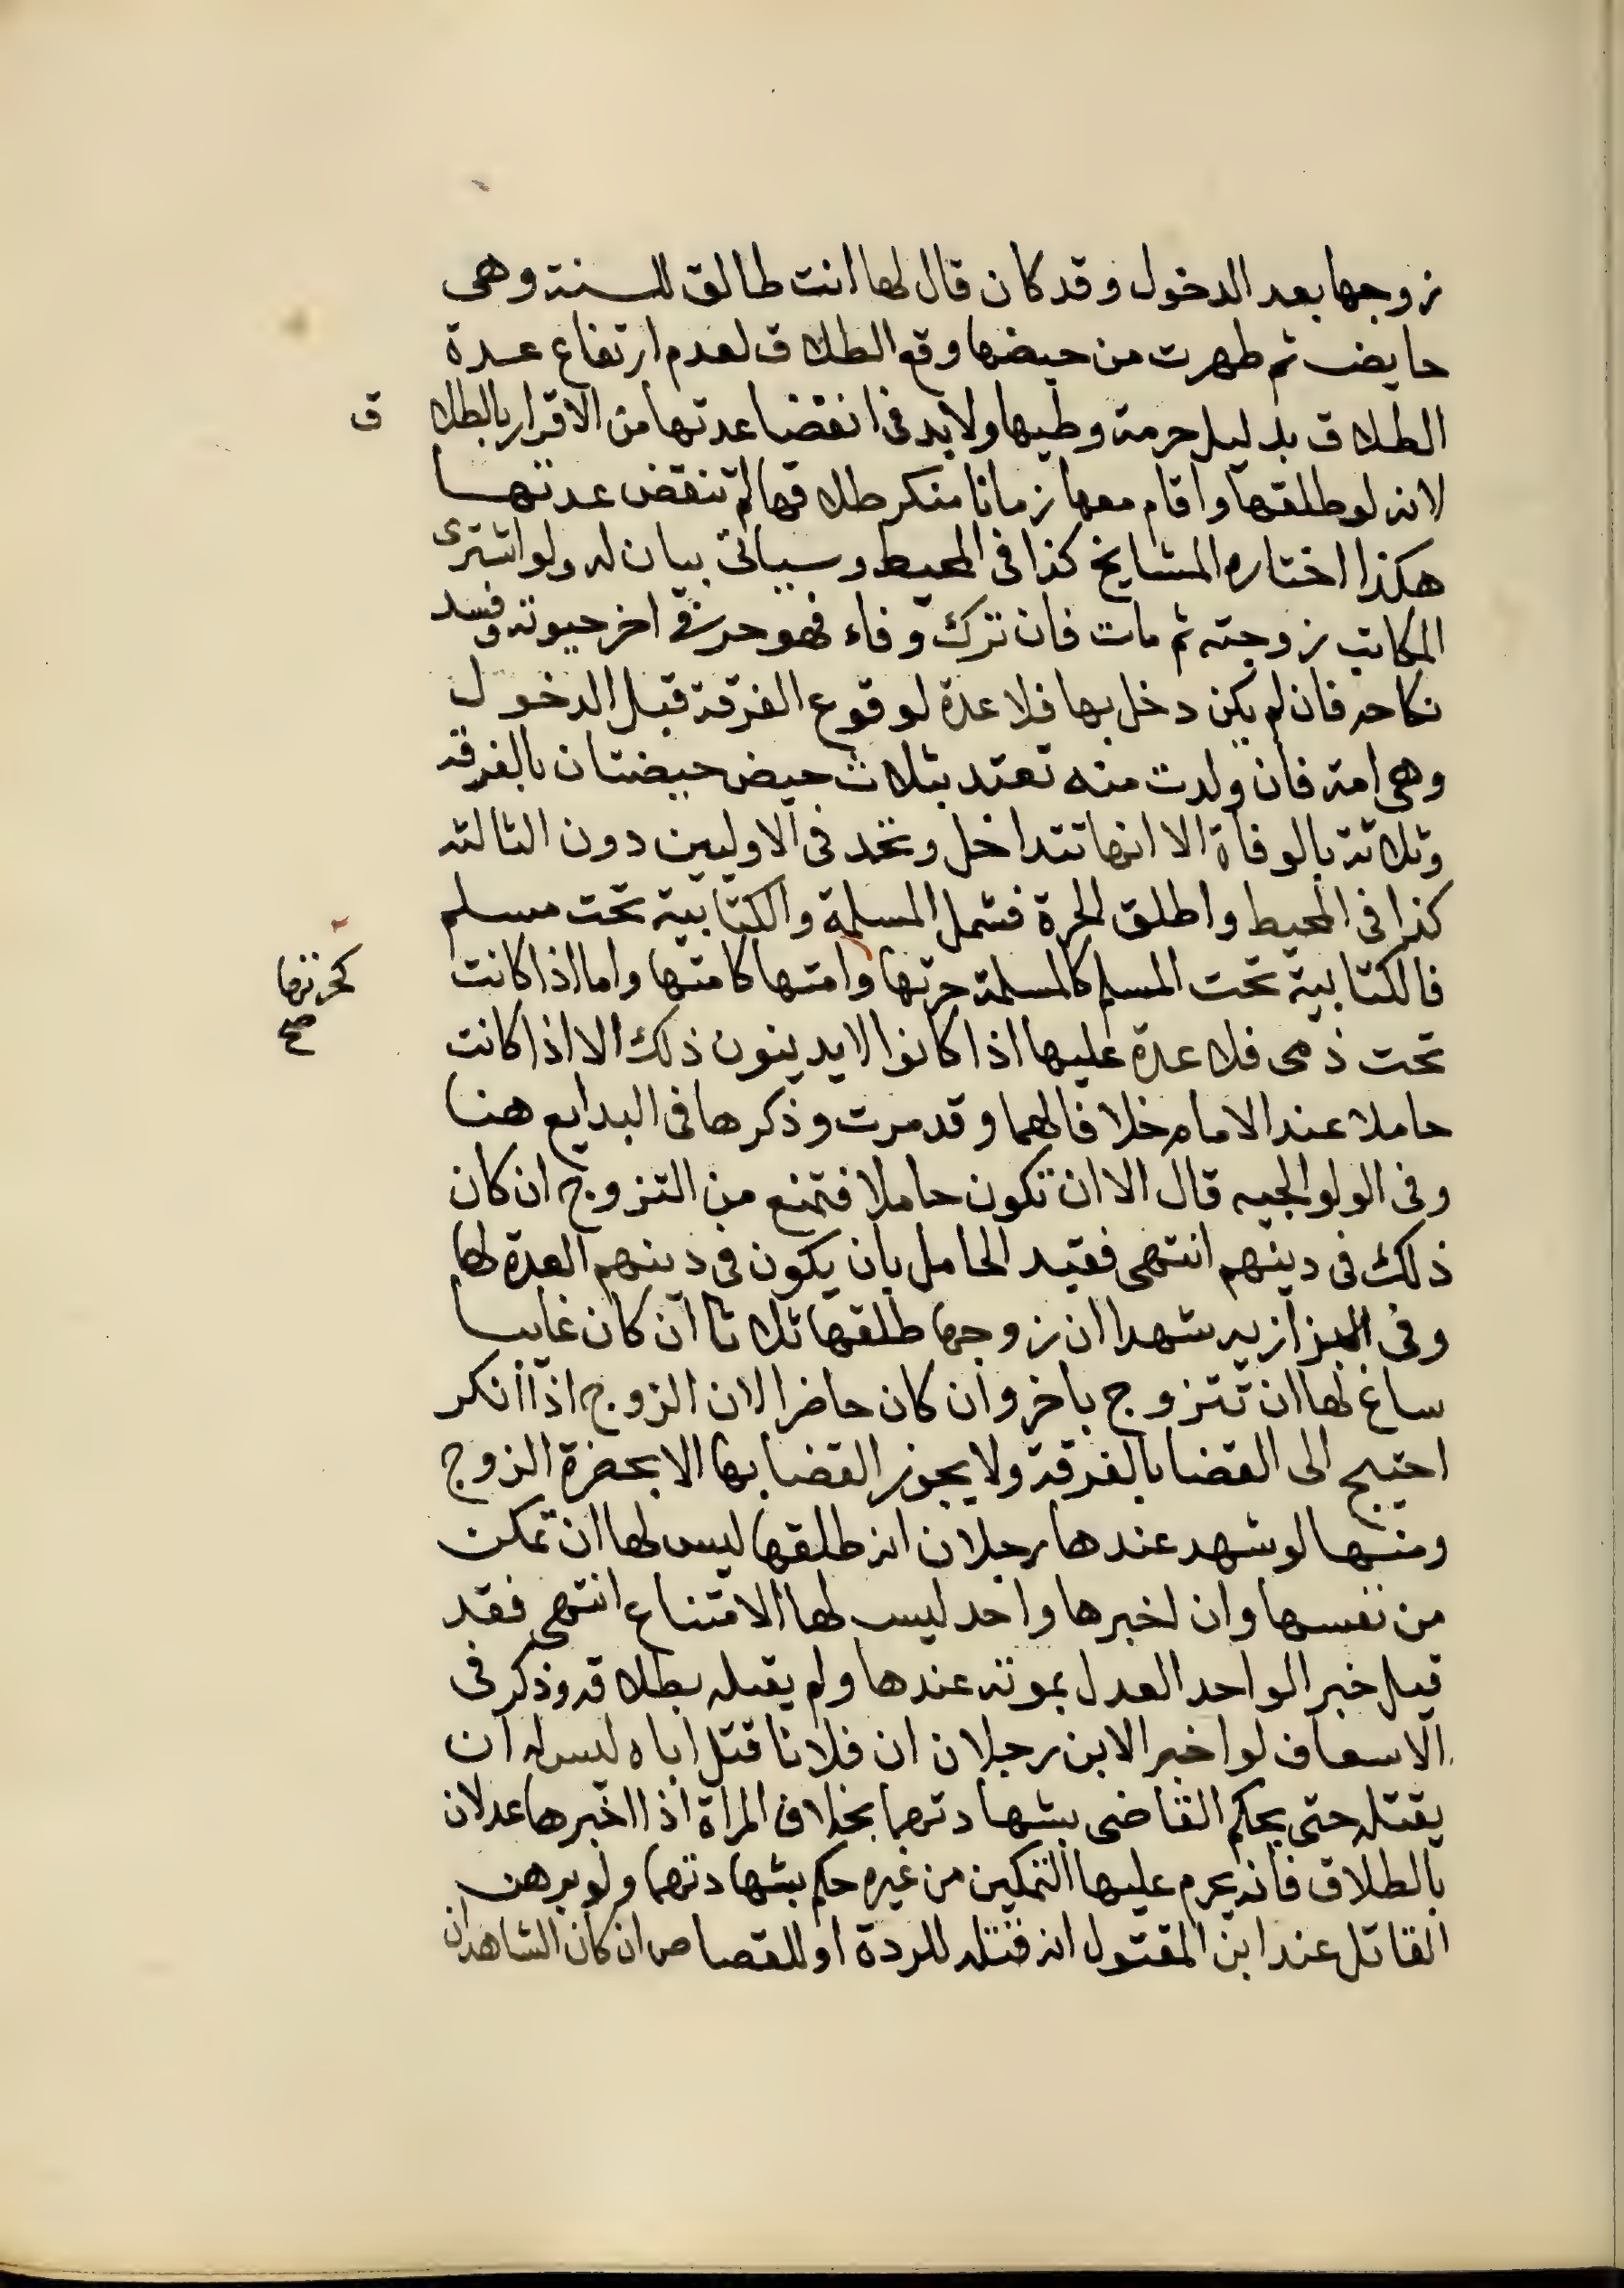 زوجها بعد الدخول وقد كان قال لها انت طالق للسنة وهى
حايض ثم طهرت من حيضها وقع الطلاق لعدم ارتفاع عدة
الطلاق بدليل حرمة وطيها ولابد فى انقضا عدتها من الاقرار بالطلاق
لانه لو طلقها واقام معها زمانا منكر طلاقها لم تنقض عدتها
هكذا اختاره المشايخ كذا فى المحيط وسياتى بيان له ولو اشترى
المكاتب زوجته ثم مات فان ترك وفاء فهو حر فى اخر حيوته وفسد
نكاحه فان لم يكن دخل بها فلا عدة لوقوع الفرقة قبل الدخول
وهى امة فان ولدت منه تعتد بثلاث حيض حيضتان بالفرقة
وثلاثة بالوفاة الا انها تتداخل وتحد فى الاوليين دون الثالثة
كذا فى المحيط واطلق الحرة فشمل المسلمة والكتابية تحت مسلم
فالكتابية تحت المسلم كالمسلمة حرتها وامتها كامتها واما اذا كانت
كحرتها
صح
تحت ذمى فلا عدة عليها اذا كانوا لايدينون ذلك الا اذا كانت
حاملا عند الامام خلافا لهما وقد مرت وذكرها فى البدايع هنا
وفى الولوالجيه قال الا ان تكون حاملا فتمنع من التزوج ان كان
ذلك فى دينهم انتهى فقيد الحامل بان يكون فى دينهم العدة لها
وفى البزازيه شهدا ان زوجها طلقها ثلاثا ان كان غايبا
ساغ لها ان تتزوج باخر وان كان حاضرا لان الزوج اذا انكر
احتيج الى القضا بالفرقة ولا يجوز القضا بها الا بحضرة الزوج
ومنها لو شهد عندها رجلان انه طلقها ليس لها ان تمكن
من نفسها وان اخبرها واحد ليس لها الامتناع انتهى فقد
قبل خبر الواحد العدل بموته عندها ولم يقبله بطلاقه وذكر فى
الاسعاف لو اخبر الابن رجلان ان فلانا قتل اباه ليس له ان
يقتله حتى يحكم القاضى بشهادتهما بخلاف المراة اذا اخبرها عدلان
بالطلاق فانه يحرم عليها التمكين من غير حكم بشهادتهما ولو برهن
القاتل عند ابن المقتول انه قتله للردة او للقصاص ان كان الشاهدان